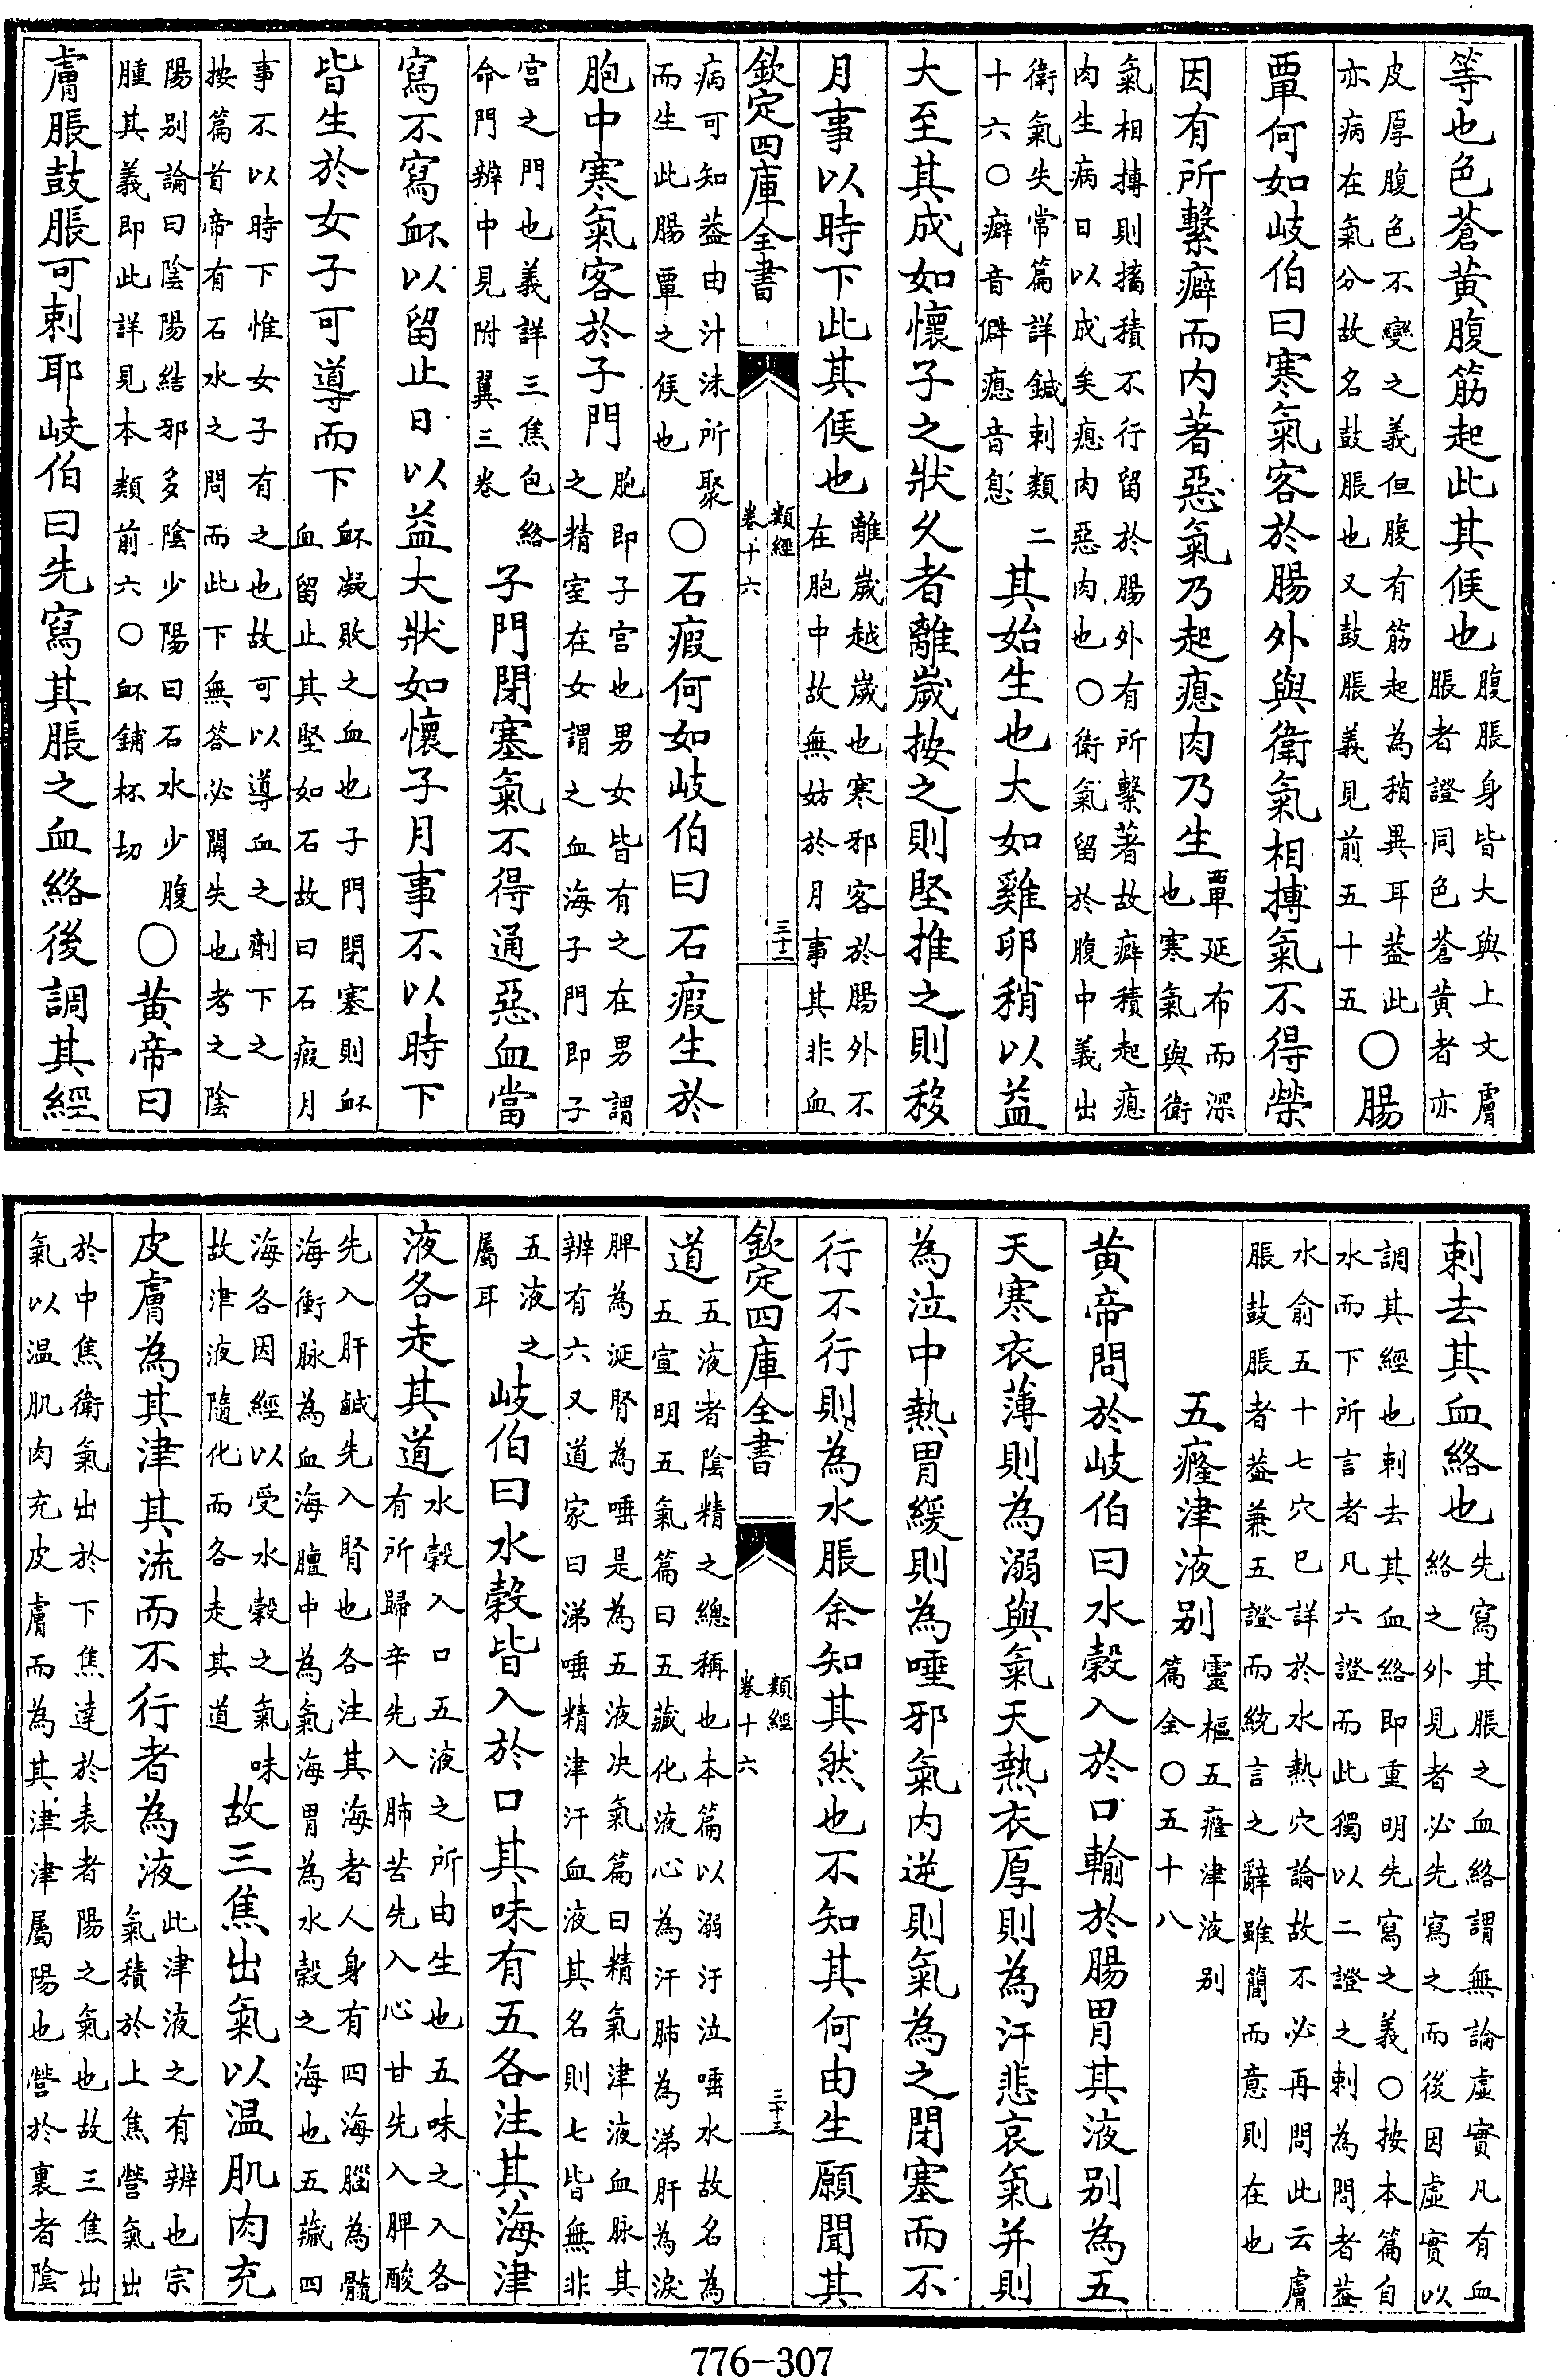 等也色蒼黃腹筋起此其候也
腹脹身皆大與上文膚
脹者證同色蒼黃者亦
皮厚腹色不變之義但腹有筋起為稍異耳蓋此
亦病在氣分故名鼓脹也又鼓脹義見前五十五
〇腸
覃何如岐伯曰寒氣客於腸外與衛氣相搏氣不得榮
因有所繫癖而內著惡氣乃起瘜肉乃生
覃延布而深
也寒氣與衛
氣相搏則搐積不行留於腸外有所繫著故癖積起瘜
肉生病日以成矣瘜肉惡肉也〇衛氣留於腹中義出
衛氣失常篇詳鍼刺類二
十六〇癖音僻瘜音息
其始生也大如雞卵稍以益
大至其成如懷子之狀久者離歲按之則堅推之則移
月事以時下此其候也
離歲越歲也寒邪客於腸外不
在胞中故無妨於月事其非血
欽定四庫全書
類經
卷十六
三十二
病可知蓋由汁沫所聚
而生此腸覃之候也
〇石瘕何如岐伯曰石瘕生於
胞中寒氣客於子門
胞即子宮也男女皆有之在男謂
之精室在女謂之血海子門即子
宮之門也義詳三焦包絡
命門辨中見附翼三卷
子門閉塞氣不得通惡血當
寫不寫衃以留止日以益大狀如懷子月事不以時下
皆生於女子可導而下
衃凝敗之血也子門閉塞則衃
血留止其堅如石故曰石瘕月
事不以時下惟女子有之也故可以導血之劑下之
按篇首帝有石水之問而此下無答必闕失也考之陰
陽別論曰陰陽結邪多陰少陽曰石水少腹
腫其義即此詳見本類前六〇衃鋪杯切
〇黃帝曰
膚脹鼓脹可刺耶岐伯曰先寫其脹之血絡後調其經
刺去其血絡也
先寫其脹之血絡謂無論虛實凡有血
絡之外見者必先寫之而後因虛實以
調其經也刺去其血絡即重明先寫之義〇按本篇自
水而下所言者凡六證而此獨以二證之刺為問者蓋
水俞五十七穴已詳於水熱穴論故不必再問此云膚
脹鼓脹者蓋兼五證而統言之辭雖簡而意則在也
五癃津液別
靈樞五癃津液別
篇全〇五十八
黃帝問於岐伯曰水穀入於口輸於腸胃其液別為五
天寒衣薄則為溺與氣天熱衣厚則為汗悲哀氣并則
為泣中熱胃緩則為唾邪氣內逆則氣為之閉塞而不
行不行則為水脹余知其然也不知其何由生願聞其
欽定四庫全書
類經
卷十六
三十三
道
五液者陰精之總稱也本篇以溺汙泣唾水故名為
五宣明五氣篇曰五藏化液心為汗肺為涕肝為淚
脾為涎腎為唾是為五液決氣篇曰精氣津液血脉其
辨有六又道家曰涕唾精津汗血液其名則七皆無非
五液之
屬耳
岐伯曰水穀皆入於口其味有五各注其海津
液各走其道
水穀入口五液之所由生也五味之入各
有所歸辛先入肺苦先入心甘先入脾酸
先入肝鹹先入腎也各注其海者人身有四海腦為髓
海衝脉為血海膻中為氣海胃為水穀之海也五藏四
海各因經以受水穀之氣味
故津液隨化而各走其道
故三焦出氣以溫肌肉充
皮膚為其津其流而不行者為液
此津液之有辨也宗
氣積於上焦營氣出
於中焦衛氣出於下焦達於表者陽之氣也故三焦出
氣以溫肌肉充皮膚而為其津津屬陽也營於裏者陰
776-307